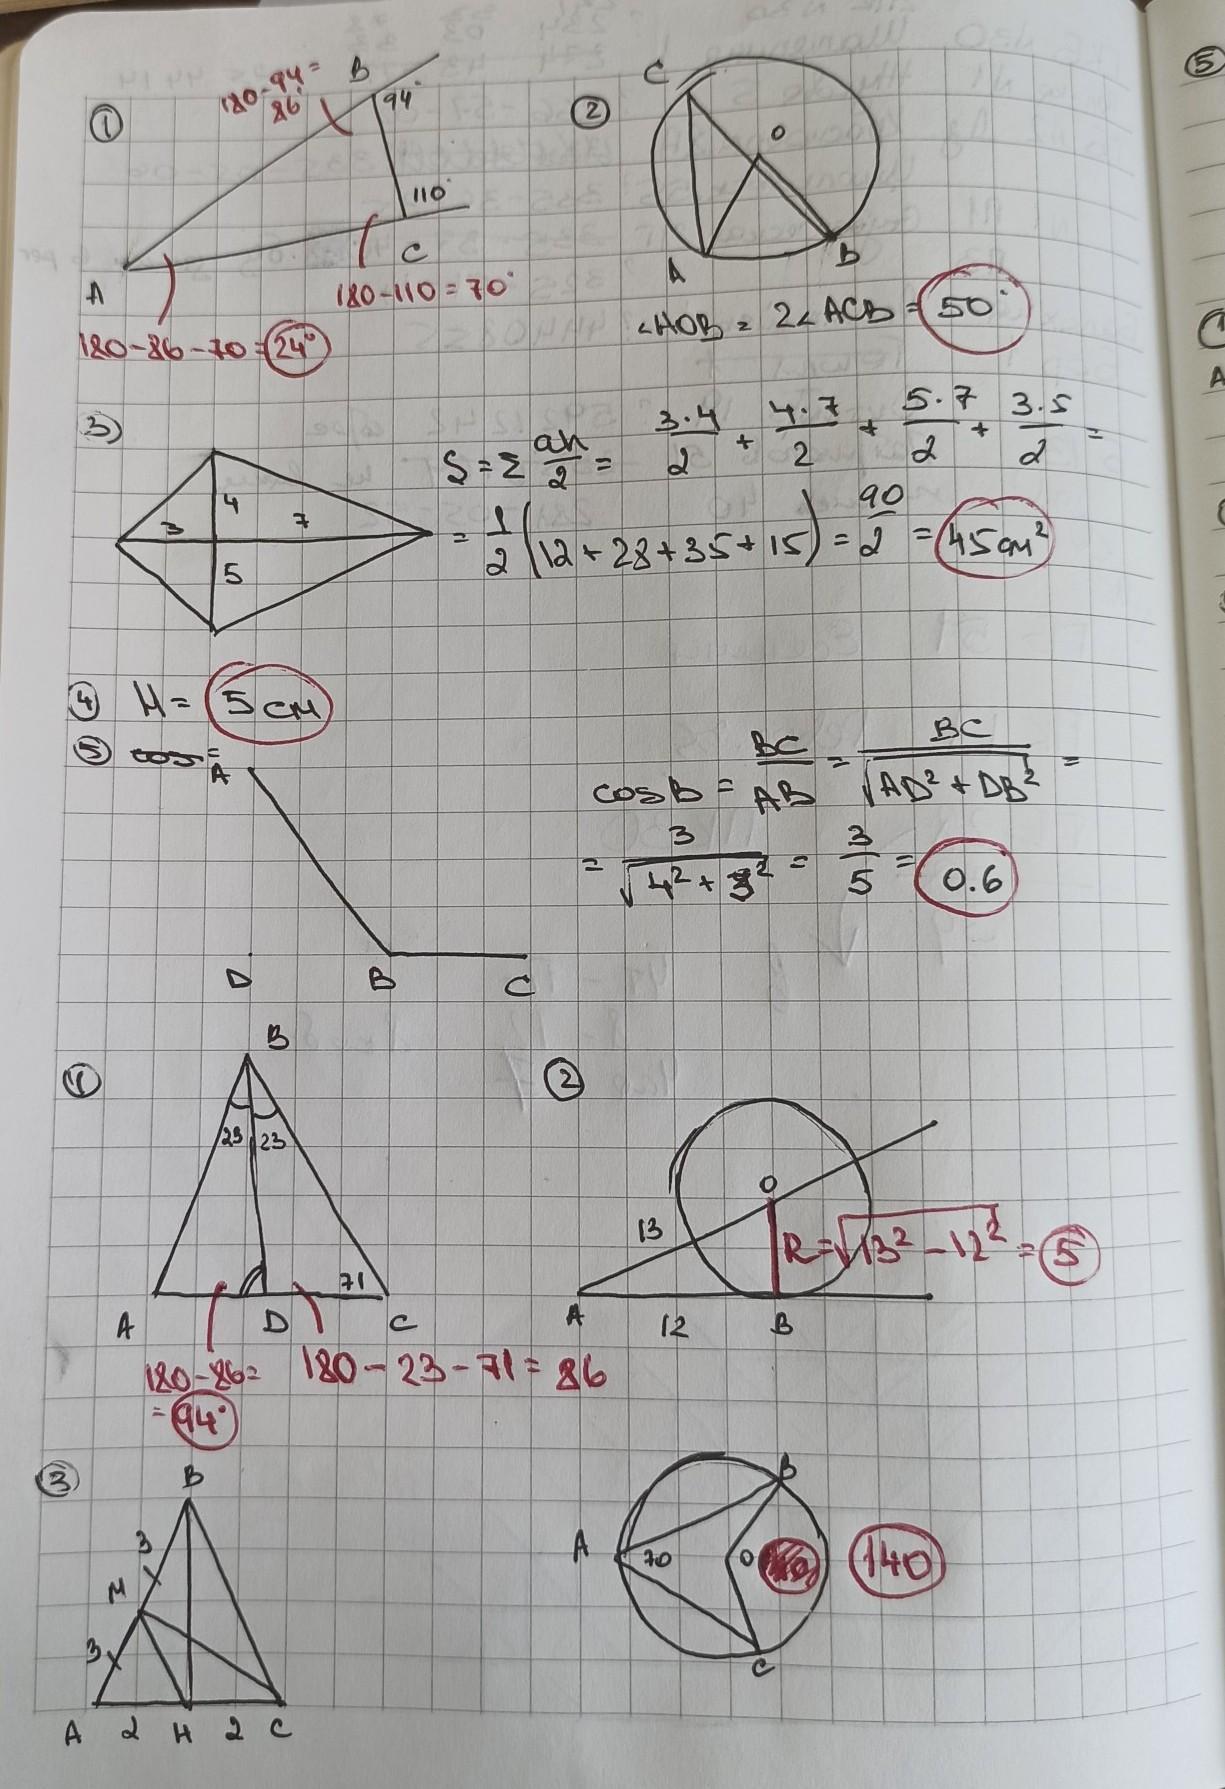 ①
180-94=
86°
B
94°
110°
A
C
180-110=70°
180-86-70=24°
②
C
O
A
B
∠AOB = 2∠ACB = 50°
3)
3
4
7
5
S = Σ ah/2 = 3·4/2 + 4·7/2 + 5·7/2 + 3·5/2 =
= 1/2 (12+28+35+15) = 90/2 = 45см²
④ H = 5 см
⑤ cos =
A
D
B
C
cosB = BC/AB = BC/√(AD²+DB²) =
= 3/√(4²+3²) = 3/5 = 0.6
①
B
23 23
71
A
D
C
180-86=
= 94°
180-23-71=86
②
O
13
R=√(13²-12²) = 5
A
12
B
③
B
3
M
3
A 2 H 2 C
B
A
70
O
140
C
⑤
①
A